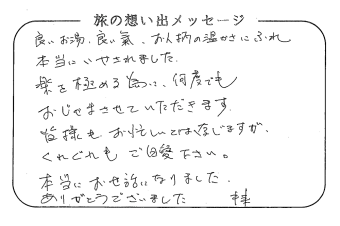 旅の想い出メッセージ
良いお湯、良い氣、お人柄の温かさにふれ
本当にいやされました。
楽を極める為に、何度でも
おじゃまさせていただきます。
皆様もお忙しいとは存じますが、
くれぐれもご自愛下さい。
本当にお世話になりました。
ありがとうございました